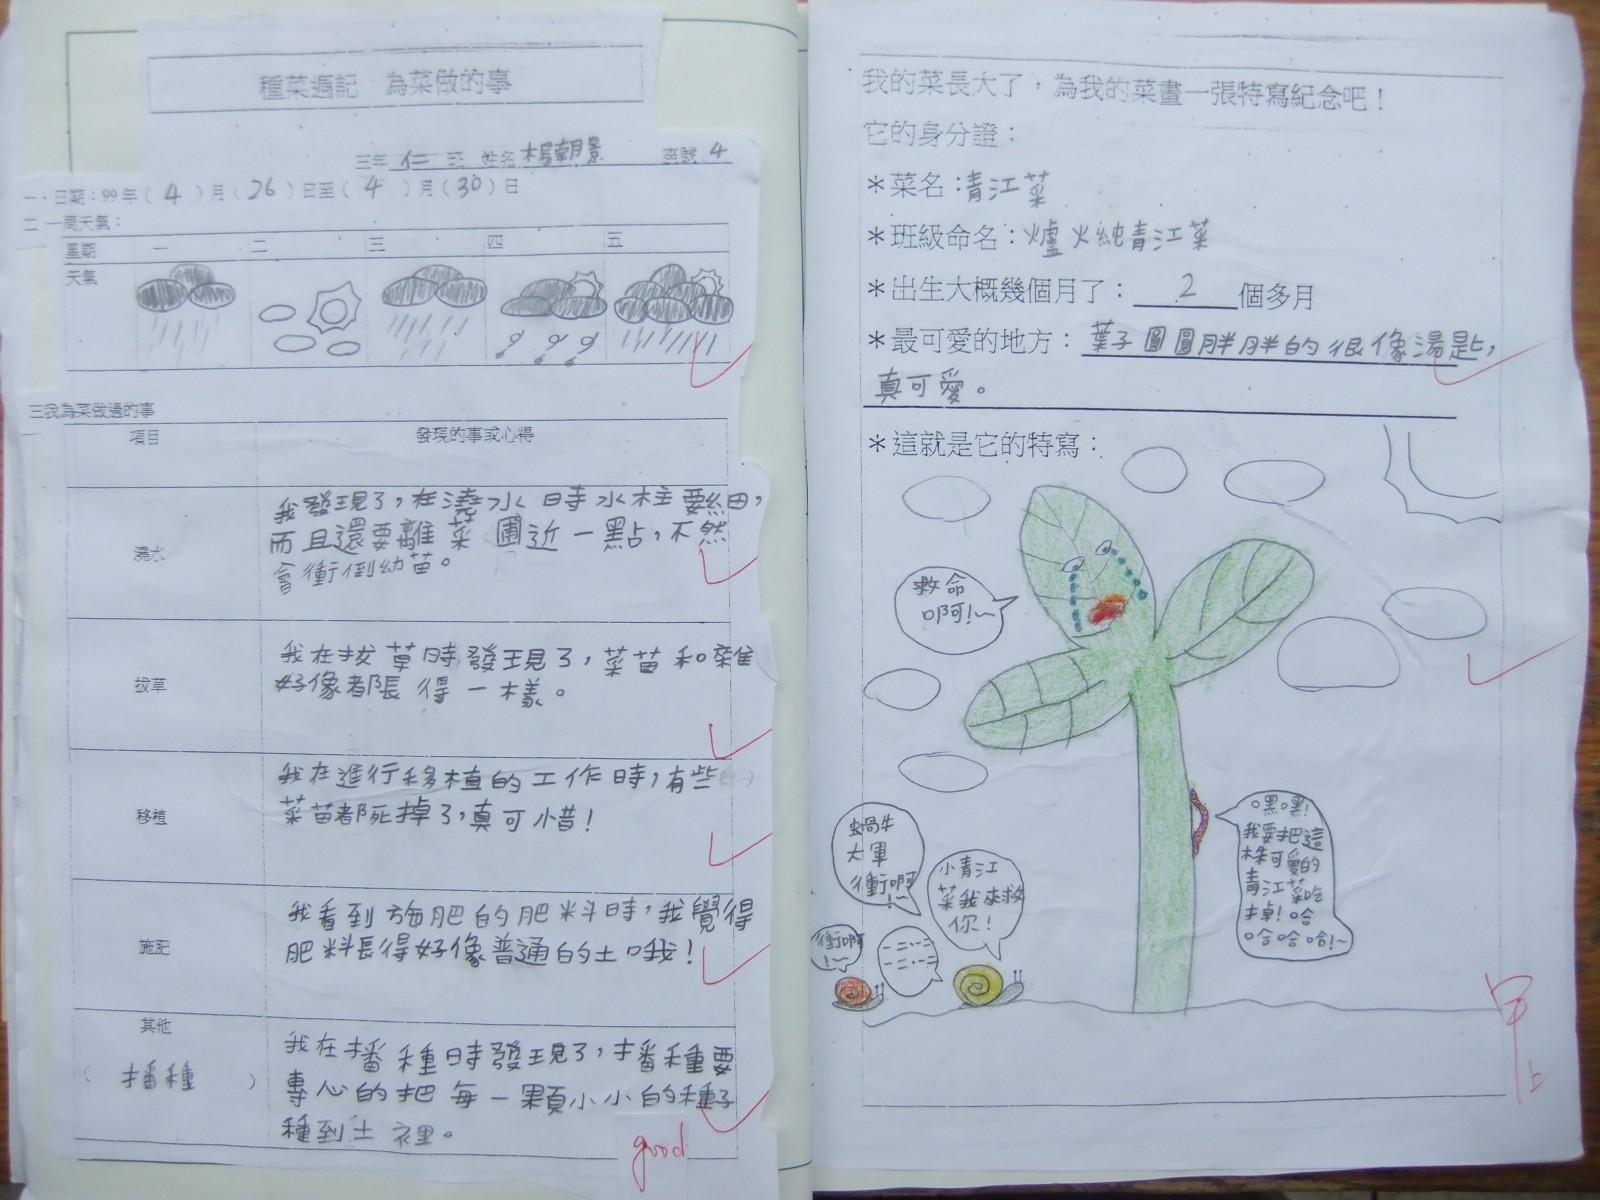 種菜週記　為菜做的事
三年 仁 班 姓名 楊朝景 座號 4
一、日期:99年(4)月(26)日至(4)月(30)日
二 一周天氣:
星期 一 二 三 四 五
天氣
三我為菜做過的事
項目 發現的事或心得
澆水
我發現了,在澆水時水柱要細,
而且還要離菜圃近一點,不然
會衝倒幼苗。
拔草
我在拔草時發現了,菜苗和雜
好像都長得一樣。
移植
我在進行移植的工作時,有些的
菜苗都死掉了,真可惜!
施肥
我看到施肥的肥料時,我覺得
肥料長得好像普通的土哦!
其他
(播種)
我在播種時發現了,播種要
專心的把每一顆小小的種子
種到土裡。
good
我的菜長大了,為我的菜畫一張特寫紀念吧!
它的身分證:
*菜名:青江菜
*班級命名:爐火純青江菜
*出生大概幾個月了:2個多月
*最可愛的地方:葉子圓圓胖胖的很像湯匙,
真可愛。
*這就是它的特寫:
救命
啊!~
蝸牛
大軍
衝啊
!~
小青江
菜我來救
你!
衝啊
!~
一二一二
一二一二
嘿嘿!
我要把這
株可愛的
青江菜吃
掉!哈
哈哈哈!~
甲
上